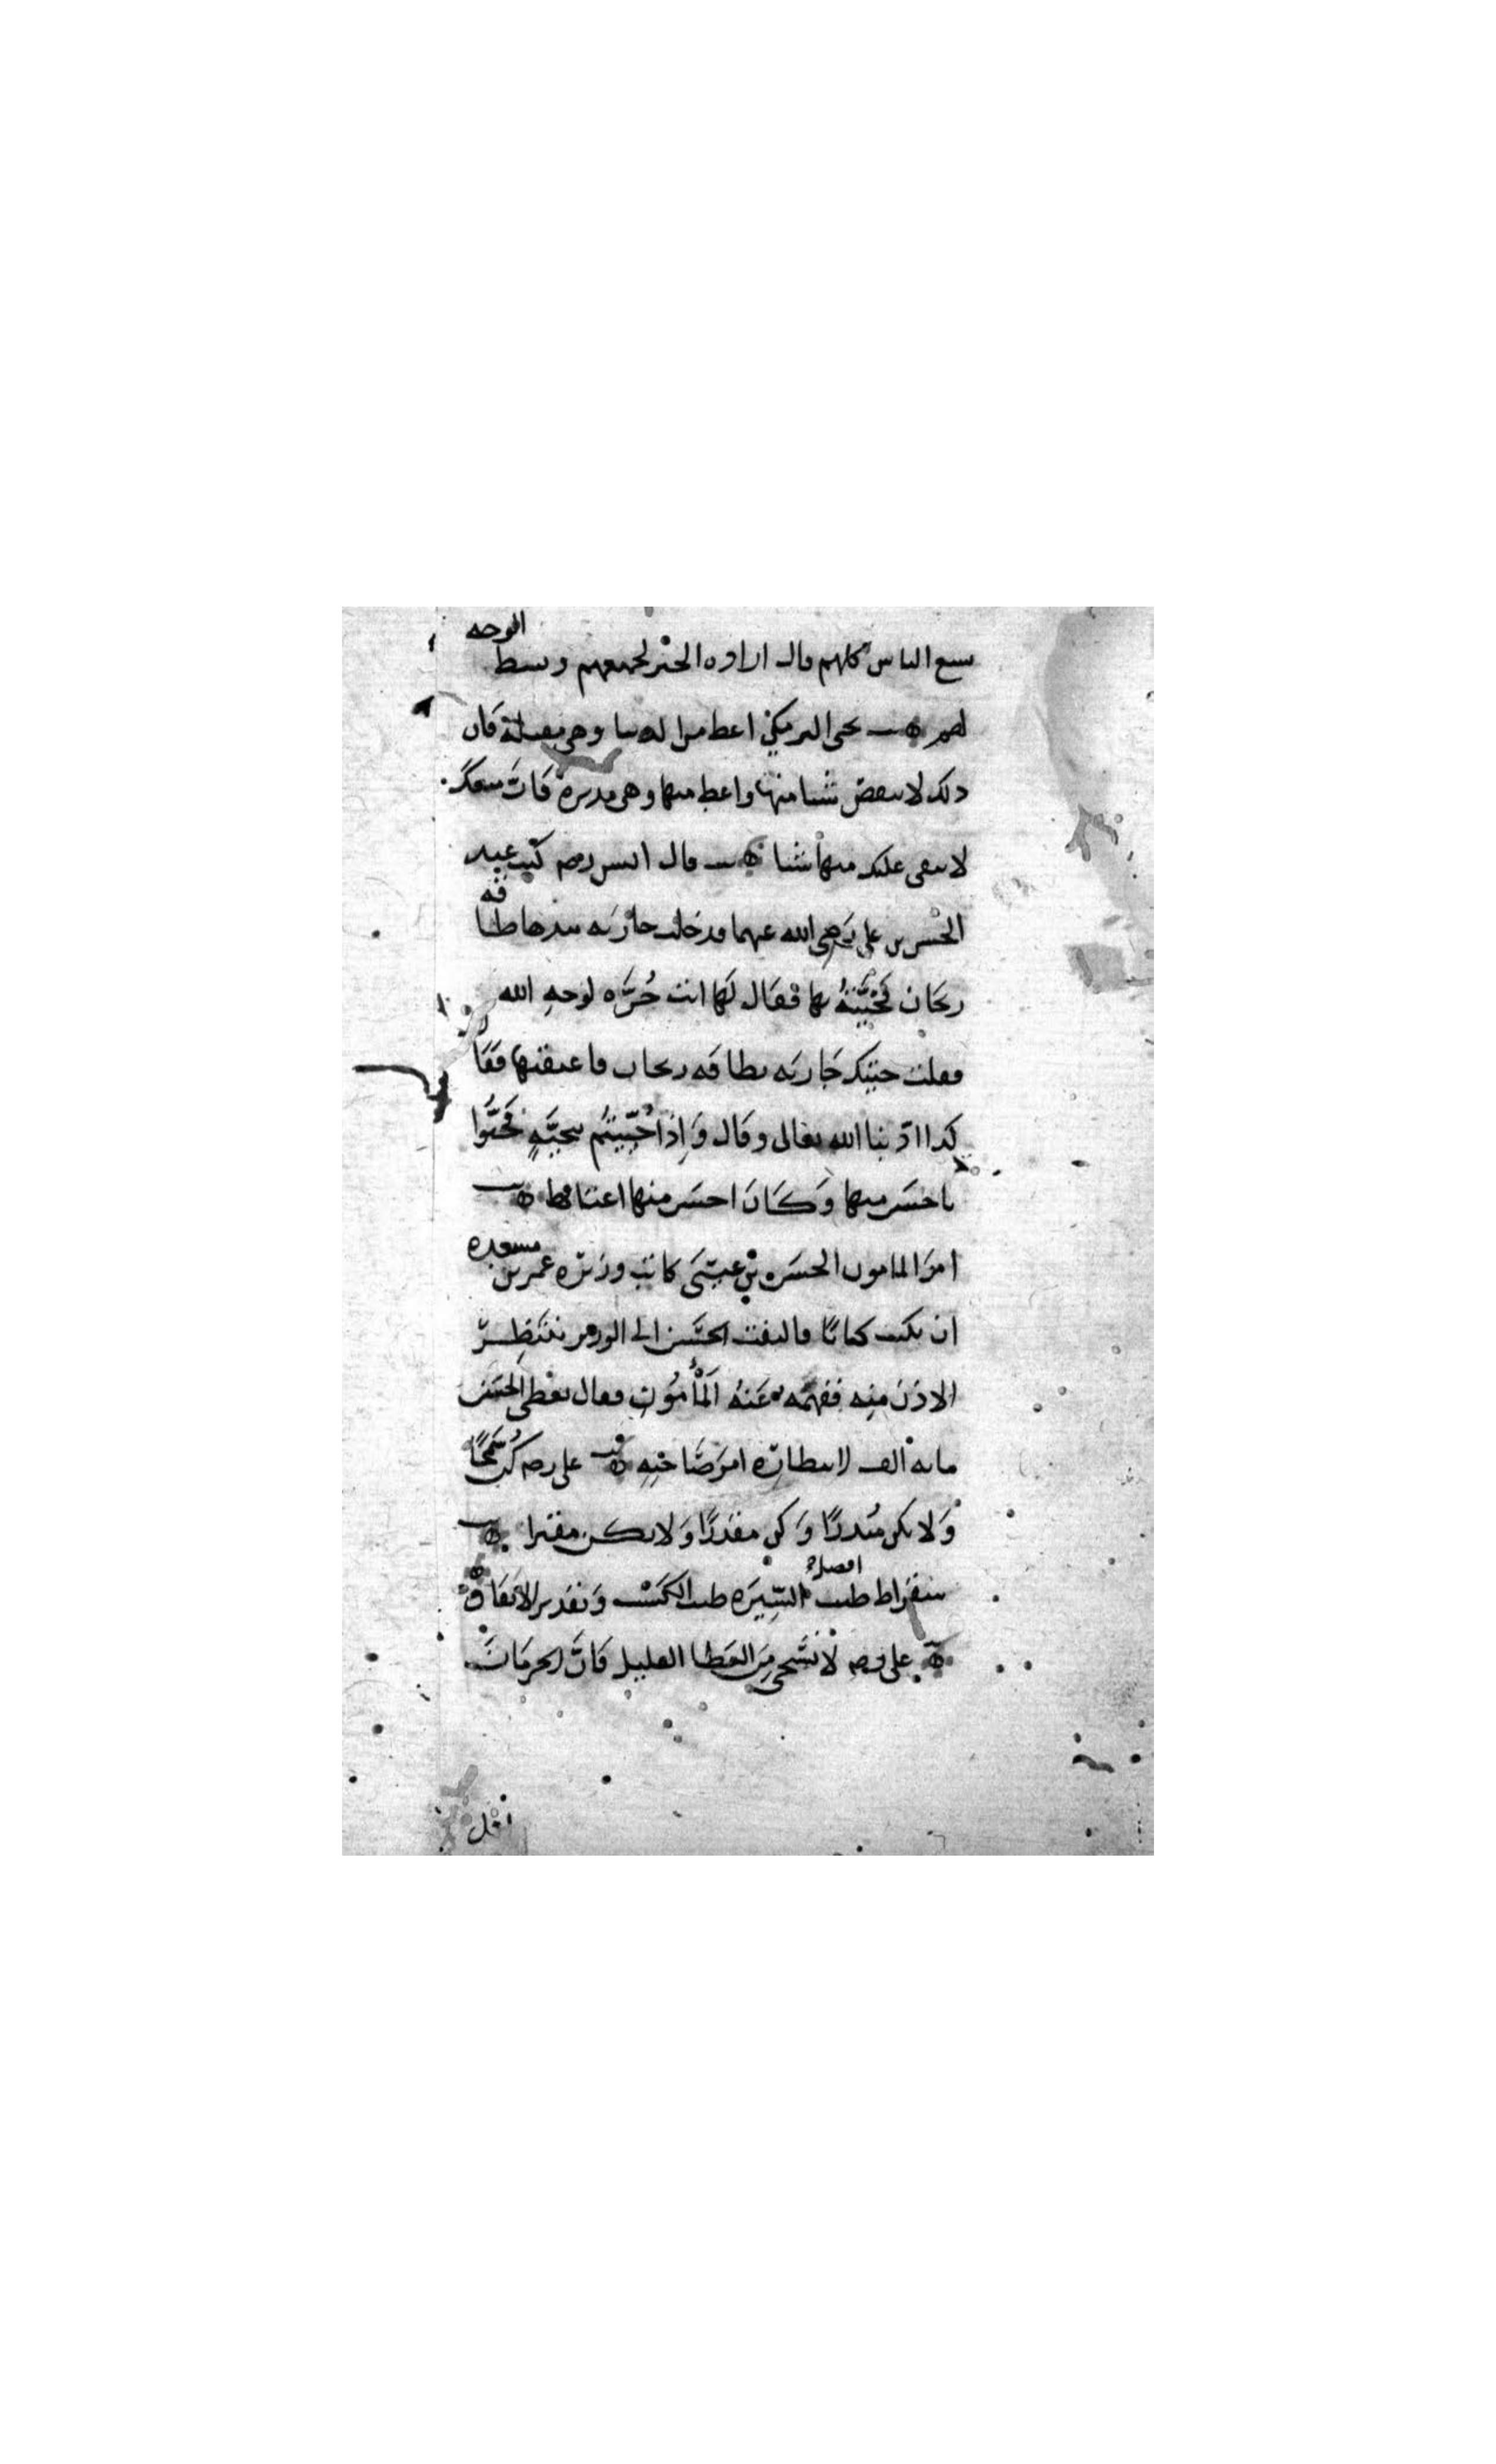 يسع الناس كلهم قال ارادة الخير لجميعهم وبسط الوجه
لهم ۞ يحيى البرمكي اعط من الدنيا وهي مقبلة فان
ذلك لا ينقص شيئا منها واعط منها وهي مدبرة فان منعك
لا يبقى عليك منها شيئا ۞ قال انس رحه كنت عند
الحسن بن علي رضي الله عنهما فدخلت جارية بيدها طاقة
ريحان فحيته بها فقال لها انت حرة لوجه الله
فقلت حيتك جارية بطاقة ريحان فاعتقتها فقا
كذا ادبنا الله تعالى وقال وَإِذَا حُيِّيتُم بتحيةٍ فحيُّوا
باحسن منها وكان احسن منها اعتاقها ۞
امر المامون الحسن بن عيسى كاتب وزيره عمر بن مسعدة
ان يكتب كتابًا فالتفت الحسن الى الوزير ينتظر
الاذن منه ففهمه عنه المأمون فقال يعطى الحسن
مائة الف لانتظاره امر صاحبه ۞ علي رحه كن سمحًا
ولا تكن مبذرًا وكن مقدرًا ولا تكن مقترا ۞
سقراط افضل السيرة طيب المكسب وتقدير الانفاق ۞
۞ علي رحه لا تستحي من العطا القليل فان الحرمان
اقل